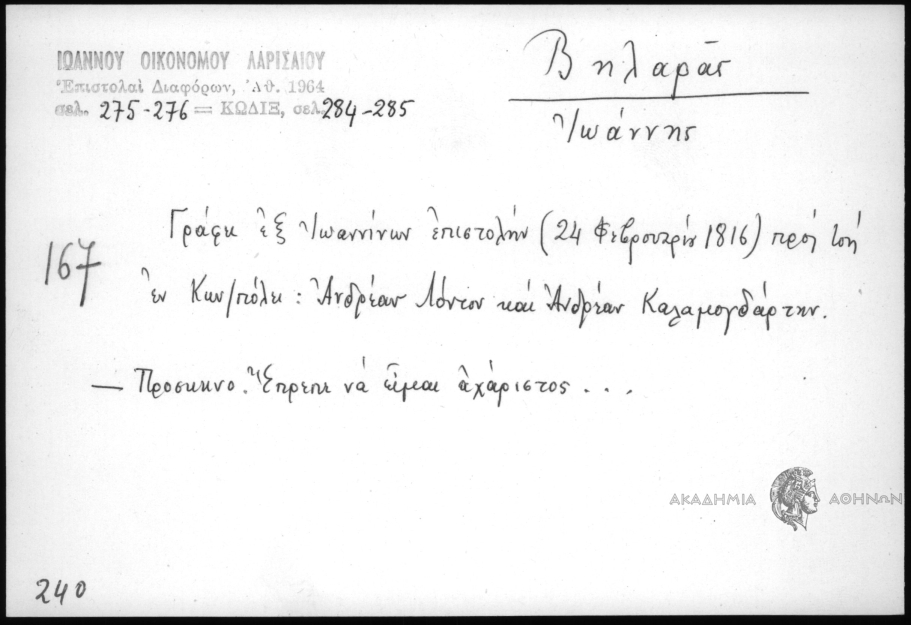 ΙΩΑΝΝΟΥ ΟΙΚΟΝΟΜΟΥ ΛΑΡΙΣΑΙΟΥ
Ἐπιστολαὶ Διαφόρων, Ἀθ. 1964
σελ. 275-276 = ΚΩΔΙΞ, σελ. 284-285
Βηλαρᾶς
Ἰωάννης
167
Γράφει ἐξ Ἰωαννίνων ἐπιστολήν (24 Φεβρουαρίου 1816) πρός τούς
ἐν Κων/πόλει : Ἀνδρέαν Λόντον καί Ἀνδρέαν Καλαμογδάρτην.
— Προσκυνο. Ἔπρεπε νά εἶμαι ἀχάριστος . . .
ΑΚΑΔΗΜΙΑ ΑΘΗΝΩΝ
240